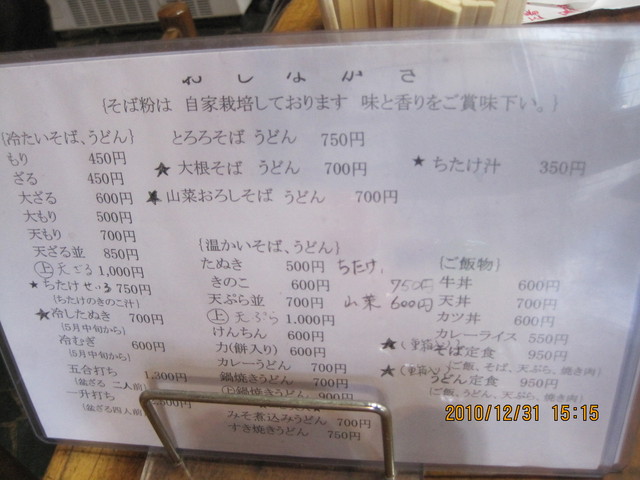 れしながさ
{そば粉は 自家栽培しております 味と香りをご賞味下い。}
{冷たいそば、うどん}
もり 450円
ざる 450円
大ざる 600円
大もり 500円
天もり 700円
天ざる並 850円
上天ざる 1,000円
★ちたけせいろ 750円
(ちたけのきのこ汁)
★冷したぬき 700円
(5月中旬から)
冷むぎ 600円
(5月中旬から)
五合打ち 1,300円
(盆ざる 二人前)
一升打ち
(盆ざる四人前)
とろろそば うどん 750円
★大根そば うどん 700円
★山菜おろしそば うどん 700円
★ちたけ汁 350円
{温かいそば、うどん}
たぬき 500円
きのこ 600円
天ぷら並 700円
上天ぷら 1,000円
けんちん 600円
力(餅入り) 600円
カレーうどん 700円
鍋焼きうどん 700円
(上)鍋焼きうどん 900円
みそ煮込みうどん 700円
すき焼きうどん 750円
ちたけ 750円
山菜 600円
{ご飯物}
牛丼 600円
天丼 700円
カツ丼 600円
カレーライス 550円
★そば定食 950円
(ご飯、そば、天ぷら、焼き肉)
★うどん定食 950円
(ご飯、うどん、天ぷら、焼き肉)
2010/12/31 15:15